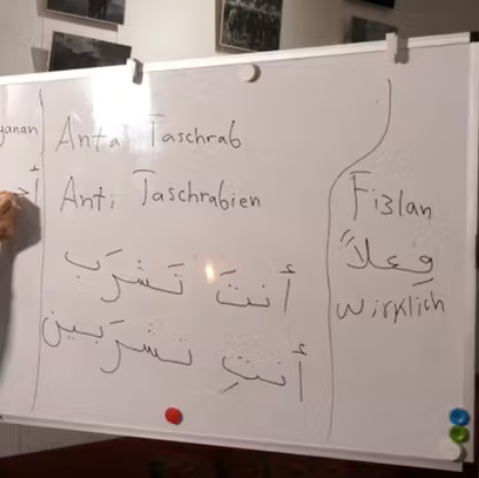 yanan
أح
Anta Taschrab
Anti Taschrabien
أنتَ تَشرَب
أنتِ تشرَبين
Fi3lan
فِعلاً
Wirklich